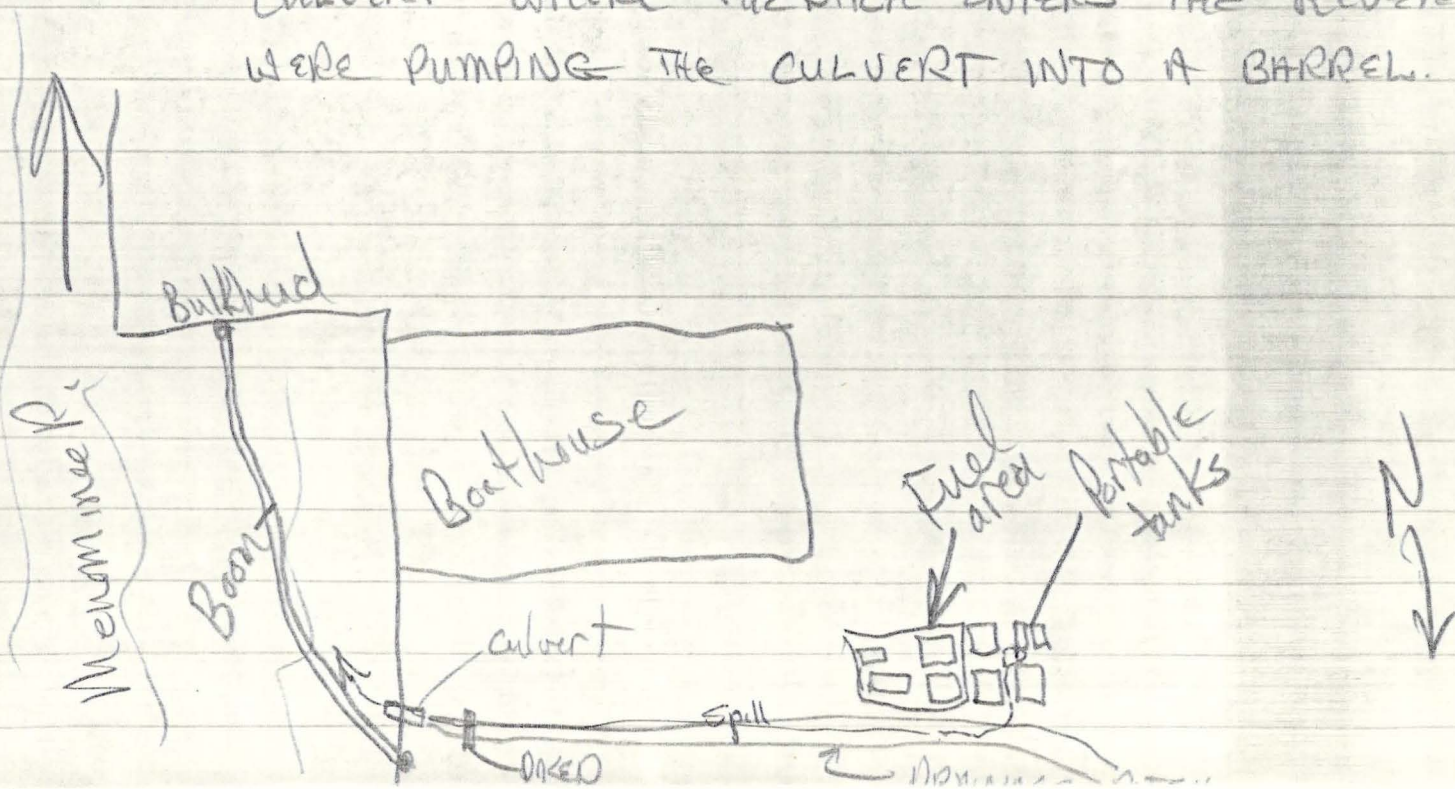 WHERE ENTERS THE
WERE PUMPING THE CULVERT INTO A BARREL.
Bulkhead
Menominee R.
Boathouse
Fuel
area
Portable
tanks
N
Boom
culvert
Spill
DIKED